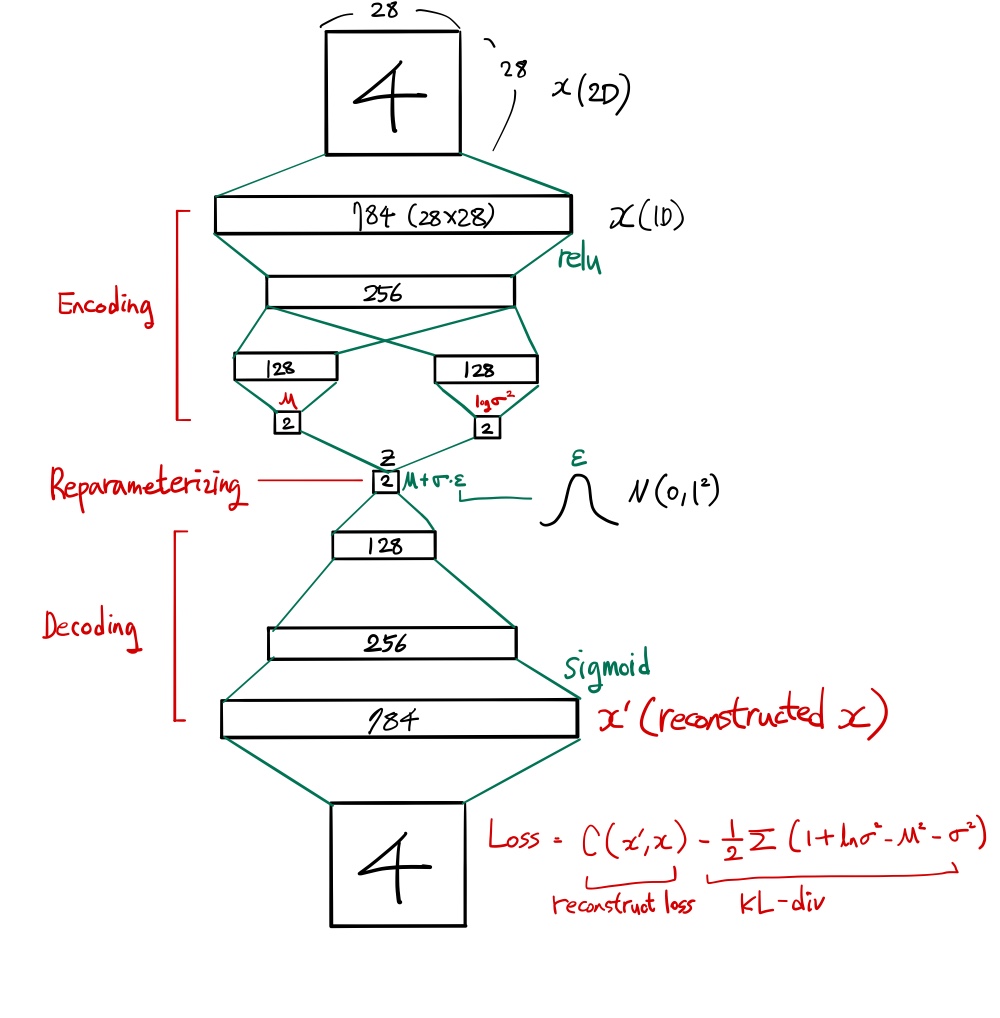 28
4
28
x (2D)
784 (28×28)
x (1D)
relu
Encoding
256
128
128
μ
logσ²
2
2
z
Reparameterizing
2
μ+σ·ε
ε
N(0,1²)
128
Decoding
256
sigmoid
784
x' (reconstructed x)
4
Loss = C(x',x) - 1/2 Σ (1+lnσ²-μ²-σ²)
reconstruct loss
KL-div